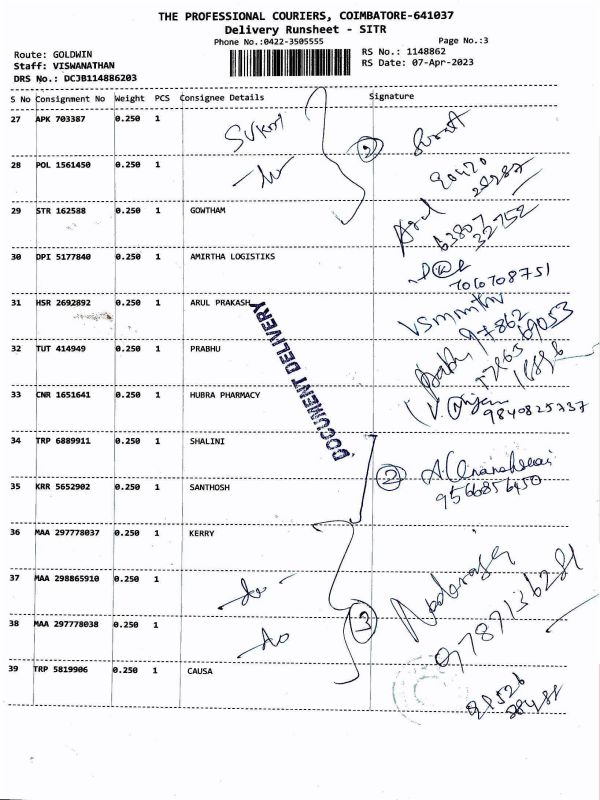 THE PROFESSIONAL COURIERS, COIMBATORE-641037
Delivery Runsheet - SITR
Phone No.:0422-3505555 Page No.:3
Route: GOLDWIN RS No.: 1148862
Staff: VISWANATHAN RS Date: 07-Apr-2023
DRS No.: DCJB114886203
S No Consignment No Weight PCS Consignee Details Signature
27 APK 703387 0.250 1
28 POL 1561450 0.250 1
29 STR 162588 0.250 1 GOWTHAM
30 DPI 5177840 0.250 1 AMIRTHA LOGISTIKS
7010708751
31 HSR 2692892 0.250 1 ARUL PRAKASH
DOCUMENT DELIVERY
32 TUT 414949 0.250 1 PRABHU
33 CNR 1651641 0.250 1 HUBRA PHARMACY
9840825737
34 TRP 6889911 0.250 1 SHALINI
2
35 KRR 5652902 0.250 1 SANTHOSH
9566856450
36 MAA 297778037 0.250 1 KERRY
37 MAA 298865910 0.250 1
38 MAA 297778038 0.250 1
3
39 TRP 5819906 0.250 1 CAUSA